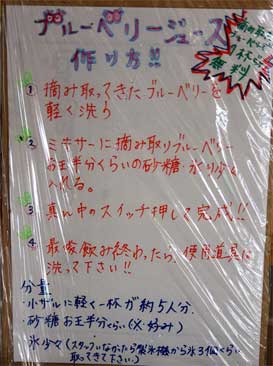 ブルーベリージュース
作り方!!
無料
① 摘み取ってきたブルーベリーを
軽く洗う
② ミキサーに摘み取りブルーベリー
お玉半分くらいの砂糖・氷り少々
入れる。
③ 真ん中のスイッチ押して完成!!
④ 最後飲み終わったら、使用道具に
洗って下さい!!
分量
・小ザルに軽く一杯が約5人分
・砂糖お玉半分くらい(※好み)
・氷少々(スタッフいながたら製氷機から氷3個くらい
取ってきて下さい。)